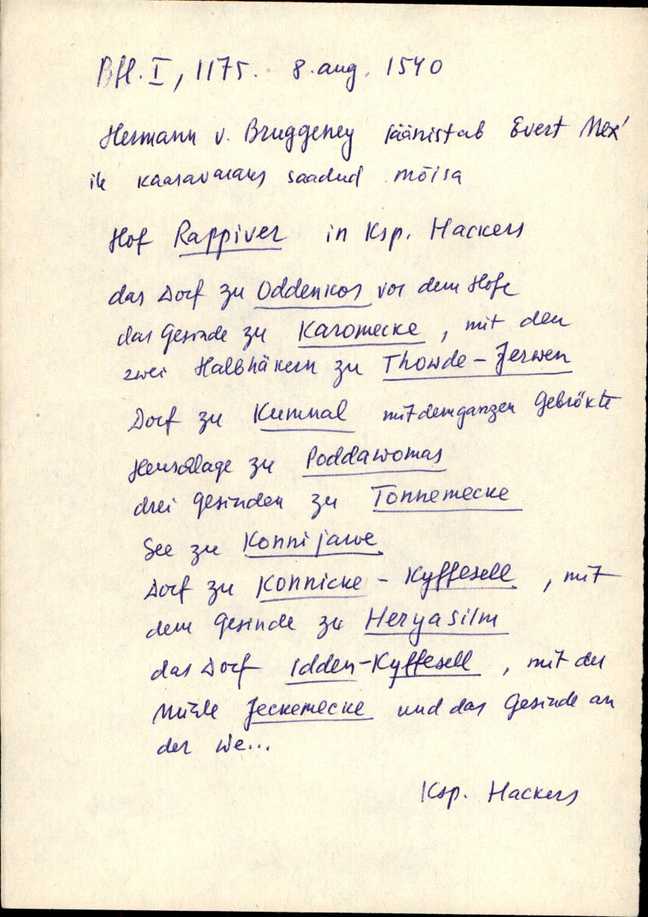 Bfl. I, 1175. 8. aug. 1540
Hermann v. Bruggeney läänistab Evert Mex'
ile kaasavaraks saadud mõisa
Hof Rappiver in Ksp. Hackers
das Dorf zu Oddenkos vor dem Hofe
das Gesinde zu Karomecke, mit den
zwei Halbhäkern zu Thowde-Jerwen
Dorf zu Kummal mit dem ganzen Gebrökte
Heuschlage zu Poddawomas
drei Gesinden zu Tonnemecke
See zu Konnijarwe
Dorf zu Konnicke-Kyffesell, mit
dem Gesinde zu Heryasilm
das Dorf Idden-Kyffesell, mit der
Mühle Jeckemecke und das Gesinde an
der We...
Ksp. Hackers